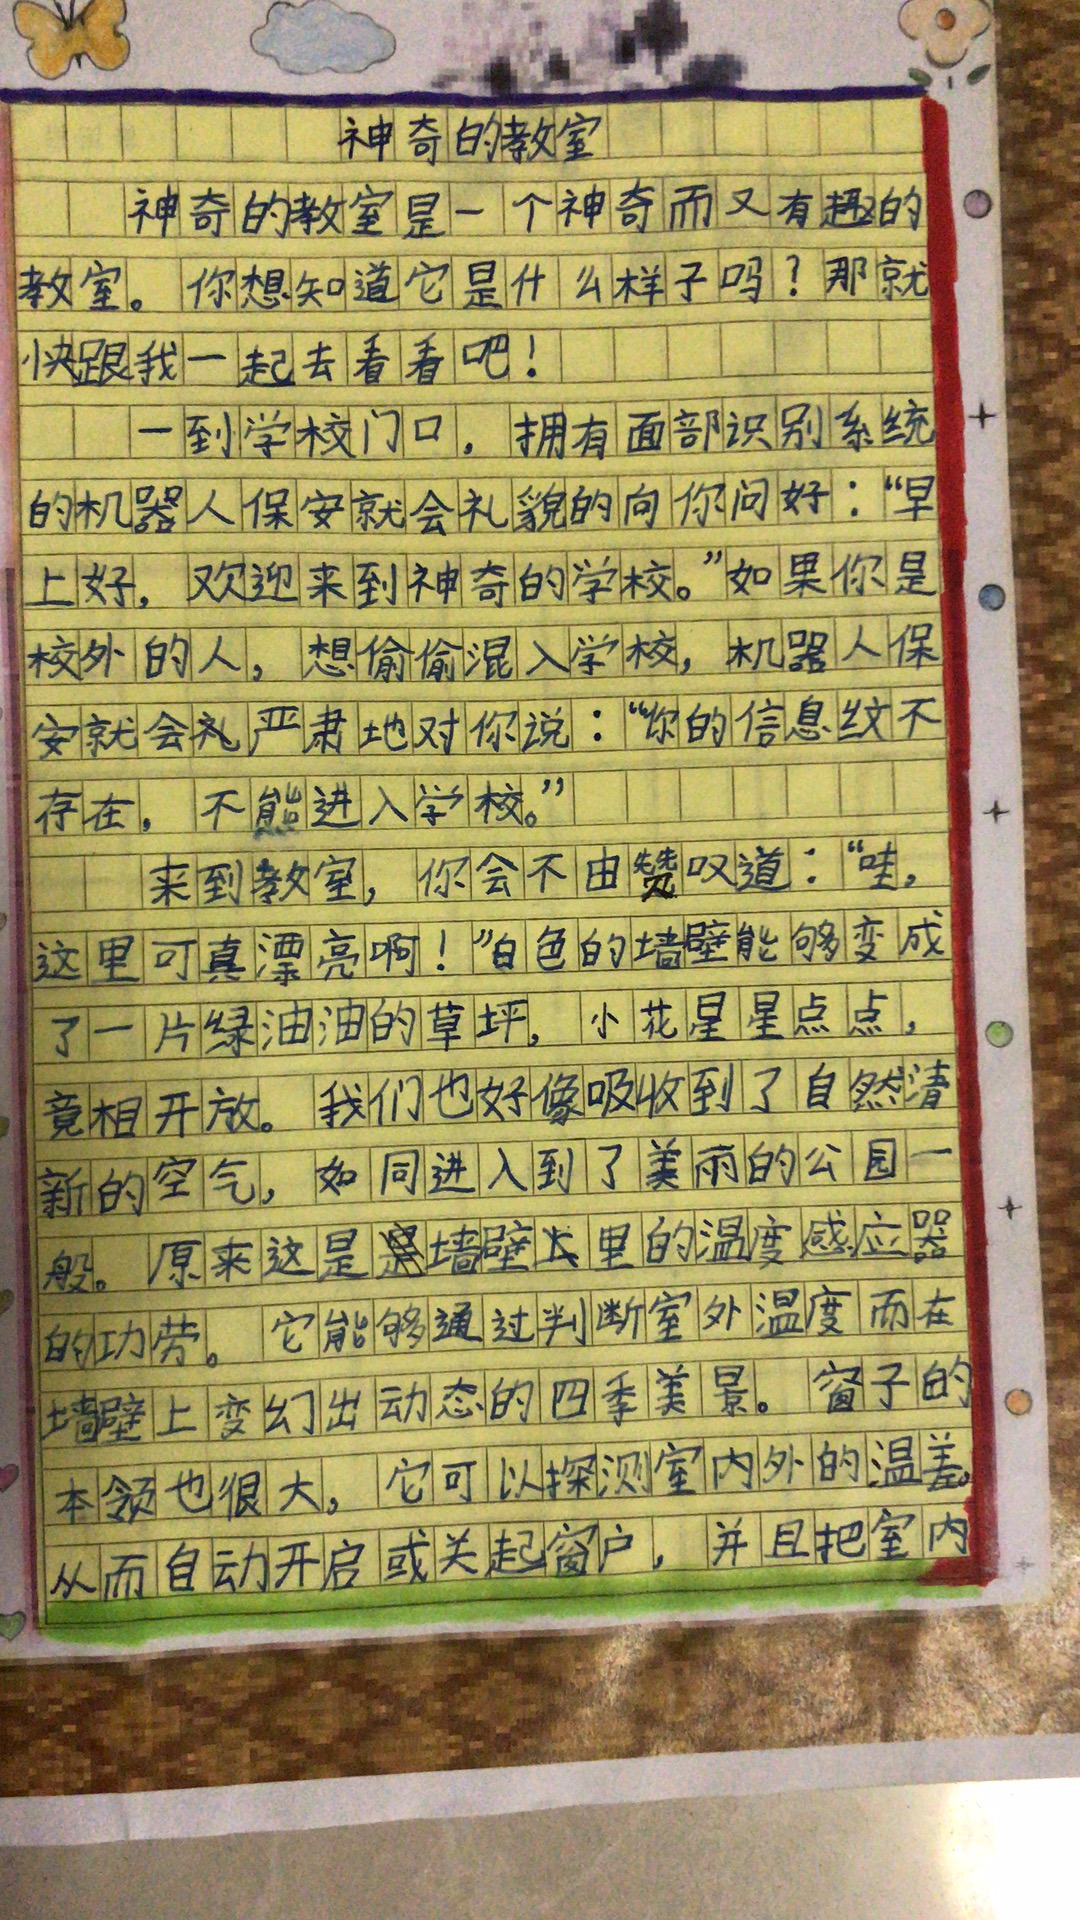 神奇的教室
神奇的教室是一个神奇而又有趣的
教室。你想知道它是什么样子吗？那就
快跟我一起去看看吧！
一到学校门口，拥有面部识别系统
的机器人保安就会礼貌的向你问好：“早
上好，欢迎来到神奇的学校。”如果你是
校外的人，想偷偷混入学校，机器人保
安就会礼严肃地对你说：“你的信息纹不
存在，不能进入学校。”
来到教室，你会不由赞叹道：“哇，
这里可真漂亮啊！”白色的墙壁能够变成
了一片绿油油的草坪，小花星星点点，
竟相开放。我们也好像吸收到了自然清
新的空气，如同进入到了美丽的公园一
般。原来这是墙壁里的温度感应器
的功劳。它能够通过判断室外温度而在
墙壁上变幻出动态的四季美景。窗子的
本领也很大，它可以探测室内外的温差，
从而自动开启或关起窗户，并且把室内